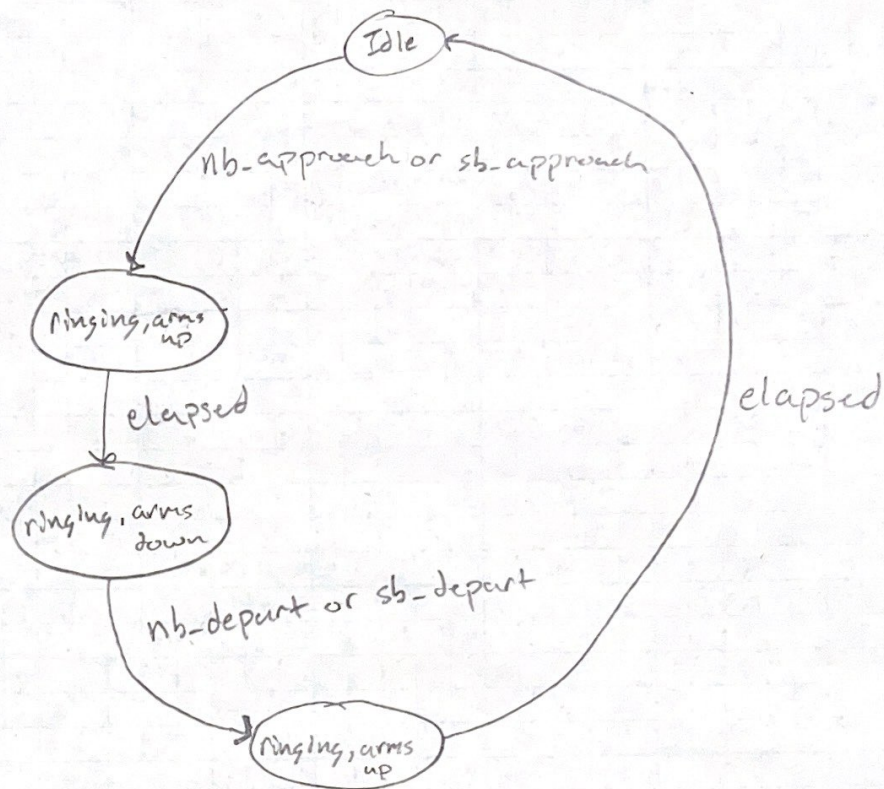 Idle
nb-approach or sb-approach
ringing, arms
up
elapsed
elapsed
ringing, arms
down
nb-depart or sb-depart
ringing, arms
up